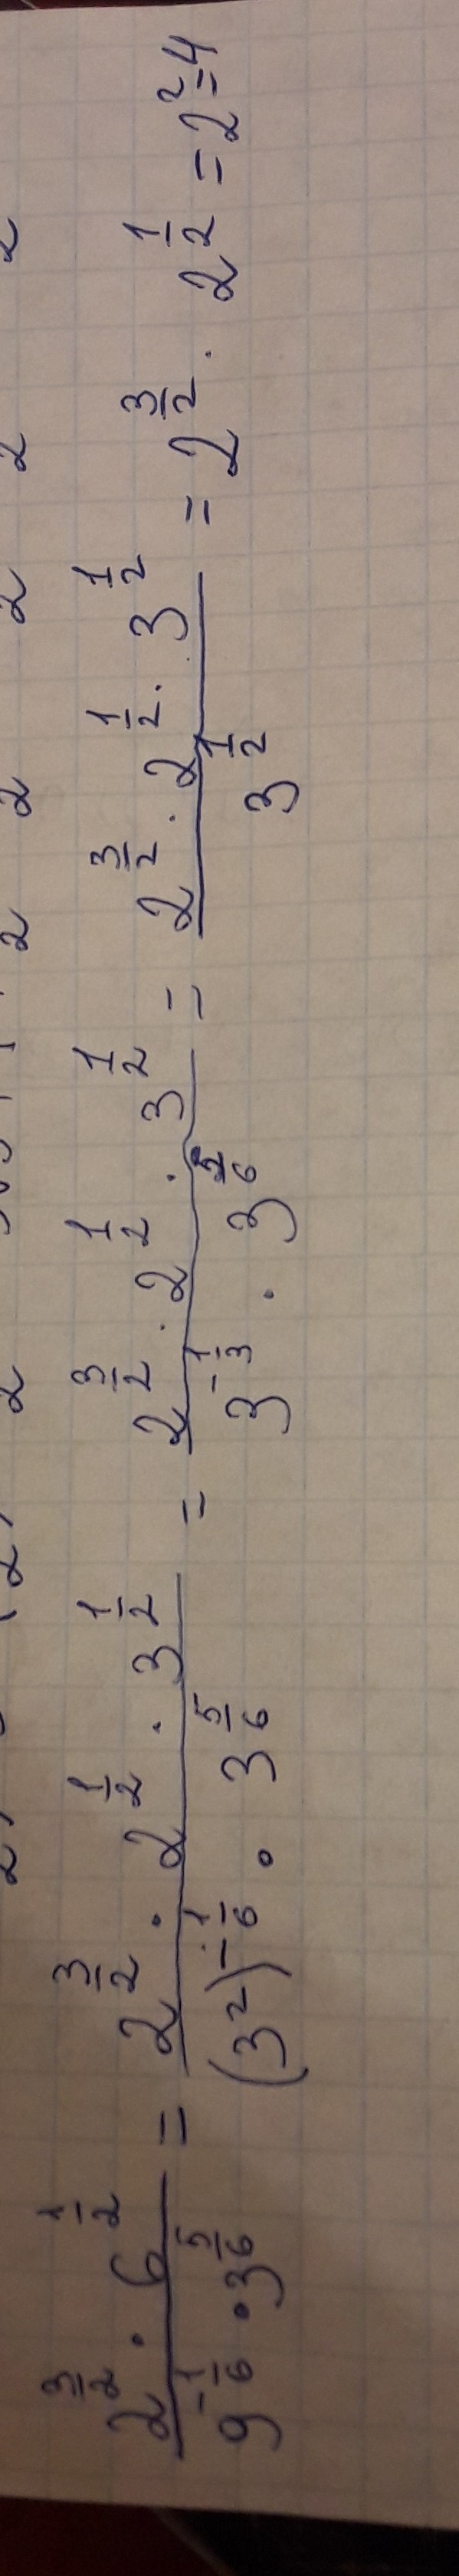 \frac{2^{\frac{3}{2}} \cdot 6^{\frac{1}{2}}}{9^{-\frac{1}{6}} \cdot 3^{\frac{5}{6}}} = \frac{2^{\frac{3}{2}} \cdot 2^{\frac{1}{2}} \cdot 3^{\frac{1}{2}}}{(3^2)^{-\frac{1}{6}} \cdot 3^{\frac{5}{6}}} = \frac{2^{\frac{3}{2}} \cdot 2^{\frac{1}{2}} \cdot 3^{\frac{1}{2}}}{3^{-\frac{1}{3}} \cdot 3^{\frac{5}{6}}} = \frac{2^{\frac{3}{2}} \cdot 2^{\frac{1}{2}} \cdot 3^{\frac{1}{2}}}{3^{\frac{1}{2}}} = 2^{\frac{3}{2}} \cdot 2^{\frac{1}{2}} = 2^2 = 4